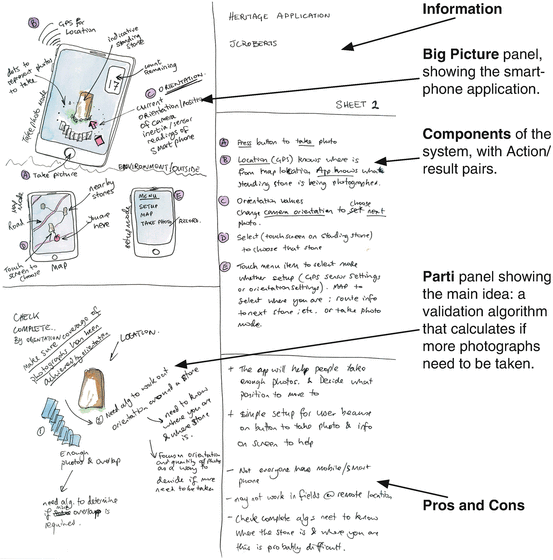 B GPS for
Location
indicative
standing
stone
dots to
represent photos
to take
Take photo mode
count
remaining
17
C ORIENTATION.
current
orientation/position
of camera
inertia/sensor
readings of
smart phone
A Take picture
ENVIRONMENT/OUTSIDE
map mode
nearby
stones
Road
you are
here
D
Touch
screen to
choose
MAP
MENU
SETUP
MAP
TAKE PHOTO
E
setup mode
HERITAGE APPLICATION
JCROBERTS
SHEET 2
A Press button to take photo
B Location (GPS) knows where is
from map location App knows what
standing stone is being photographed.
C Orientation values choose
change camera orientation to set next
photo.
D Select (touch screen on standing stone)
to choose that stone
E Touch menu item to select mode
whether setup (GPS sensor settings
or orientation settings). MAP to
select where you are; route info
to next stone; etc. or take photo
mode.
CHECK
COMPLETE..
BY ORIENTATION COVERAGE OF
Make sure
photography has been
achieved by orientation
LOCATION.
② Need alg to work out
orientation around a stone
need to know
where you are
& where stone
is.
①
Enough
photos & overlap
need alg. to determine
if overlap is
required.
Focus on orientation
and quantity of photos
as a way to
decide if more
need to be taken
+ The app will help people take
enough photos. & Decide what
position to move to
+ Simple setup for user because
on button to take photo & info
on screen to help
- Not everyone have mobile/smart
phone
- may not work in fields @ remote location
- Check complete algs need to know
where the stone is & where you are
this is probably difficult.
Information
Big Picture panel,
showing the smart-
phone application.
Components of the
system, with Action/
result pairs.
Parti panel showing
the main idea: a
validation algorithm
that calculates if
more photographs
need to be taken.
Pros and Cons